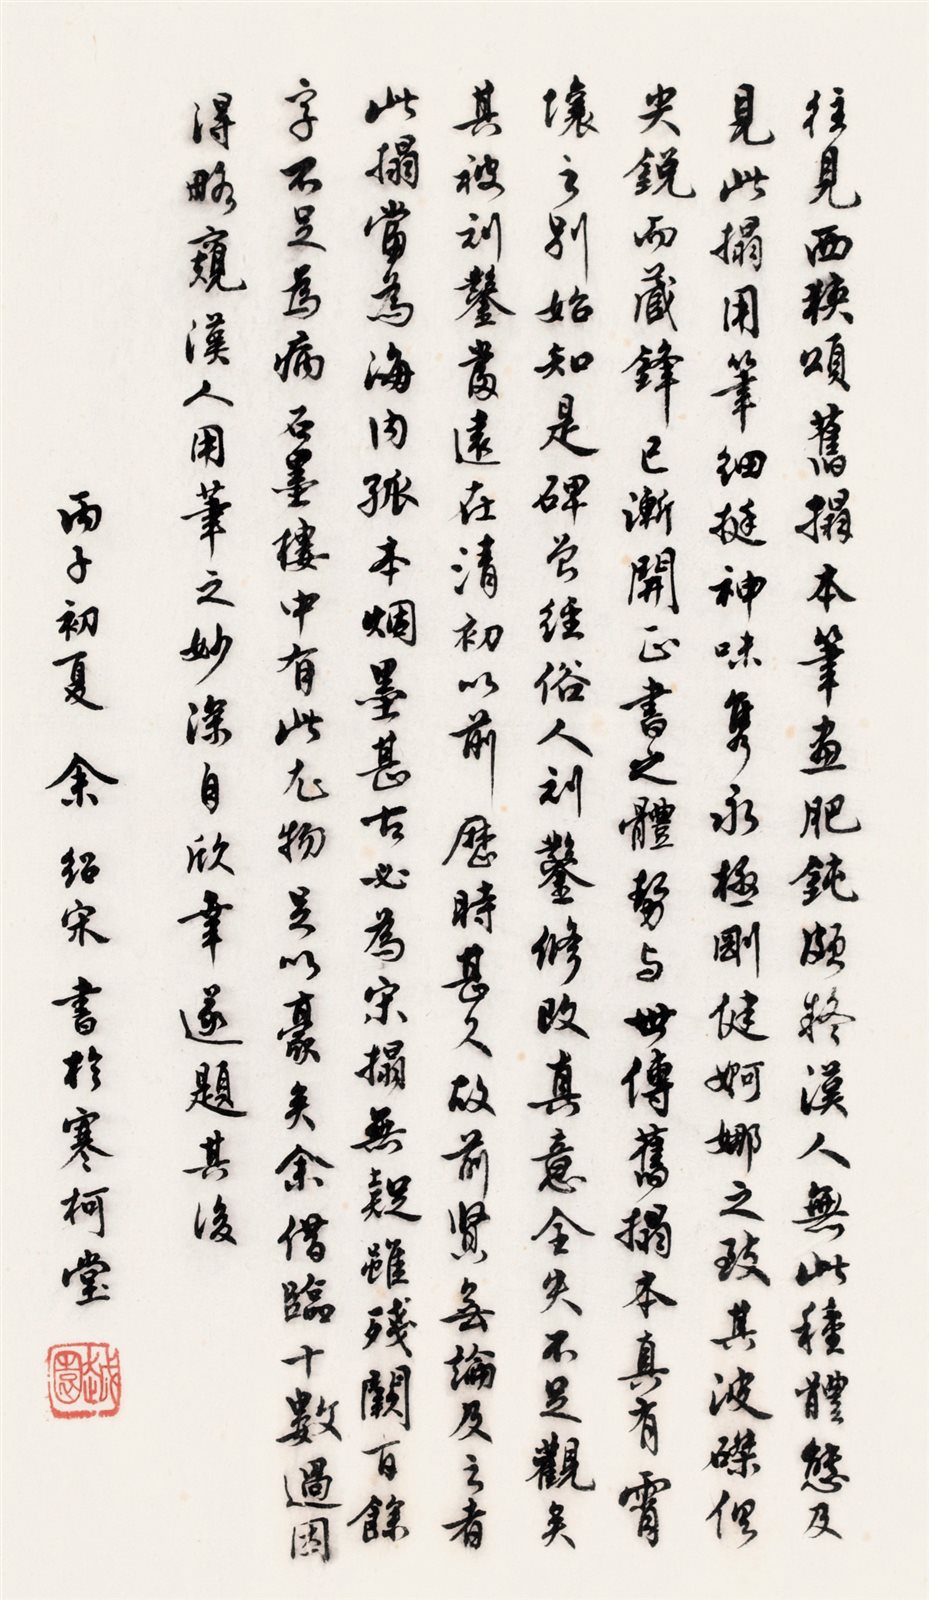 往見西狹頌舊搨本筆畫肥鈍頗疑漢人無此種體態及
見此搨用筆細挺神味雋永極剛健婀娜之致其波磔俱
尖銳而藏鋒已漸開正書之體勢与世傳舊搨本真有霄
壤之别始知是碑曾經俗人剜鑿修改真意全失不足觀矣
其被剜鑿當遠在清初以前歷時甚久故前賢無論及之者
此搨當為海内孤本烟墨甚古必為宋搨無疑雖殘闕百餘
字不足為病石墨樓中有此尤物足以豪矣余借臨十數過因
得略窺漢人用筆之妙深自欣幸遂題其後
丙子初夏 余紹宋書於寒柯堂
越園